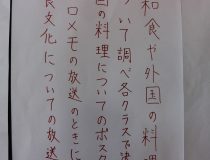 和食や外国の料理
ついて調べ各クラスで決
国の料理についてのポスタ
ロメモの放送のときに
食文化についての放送